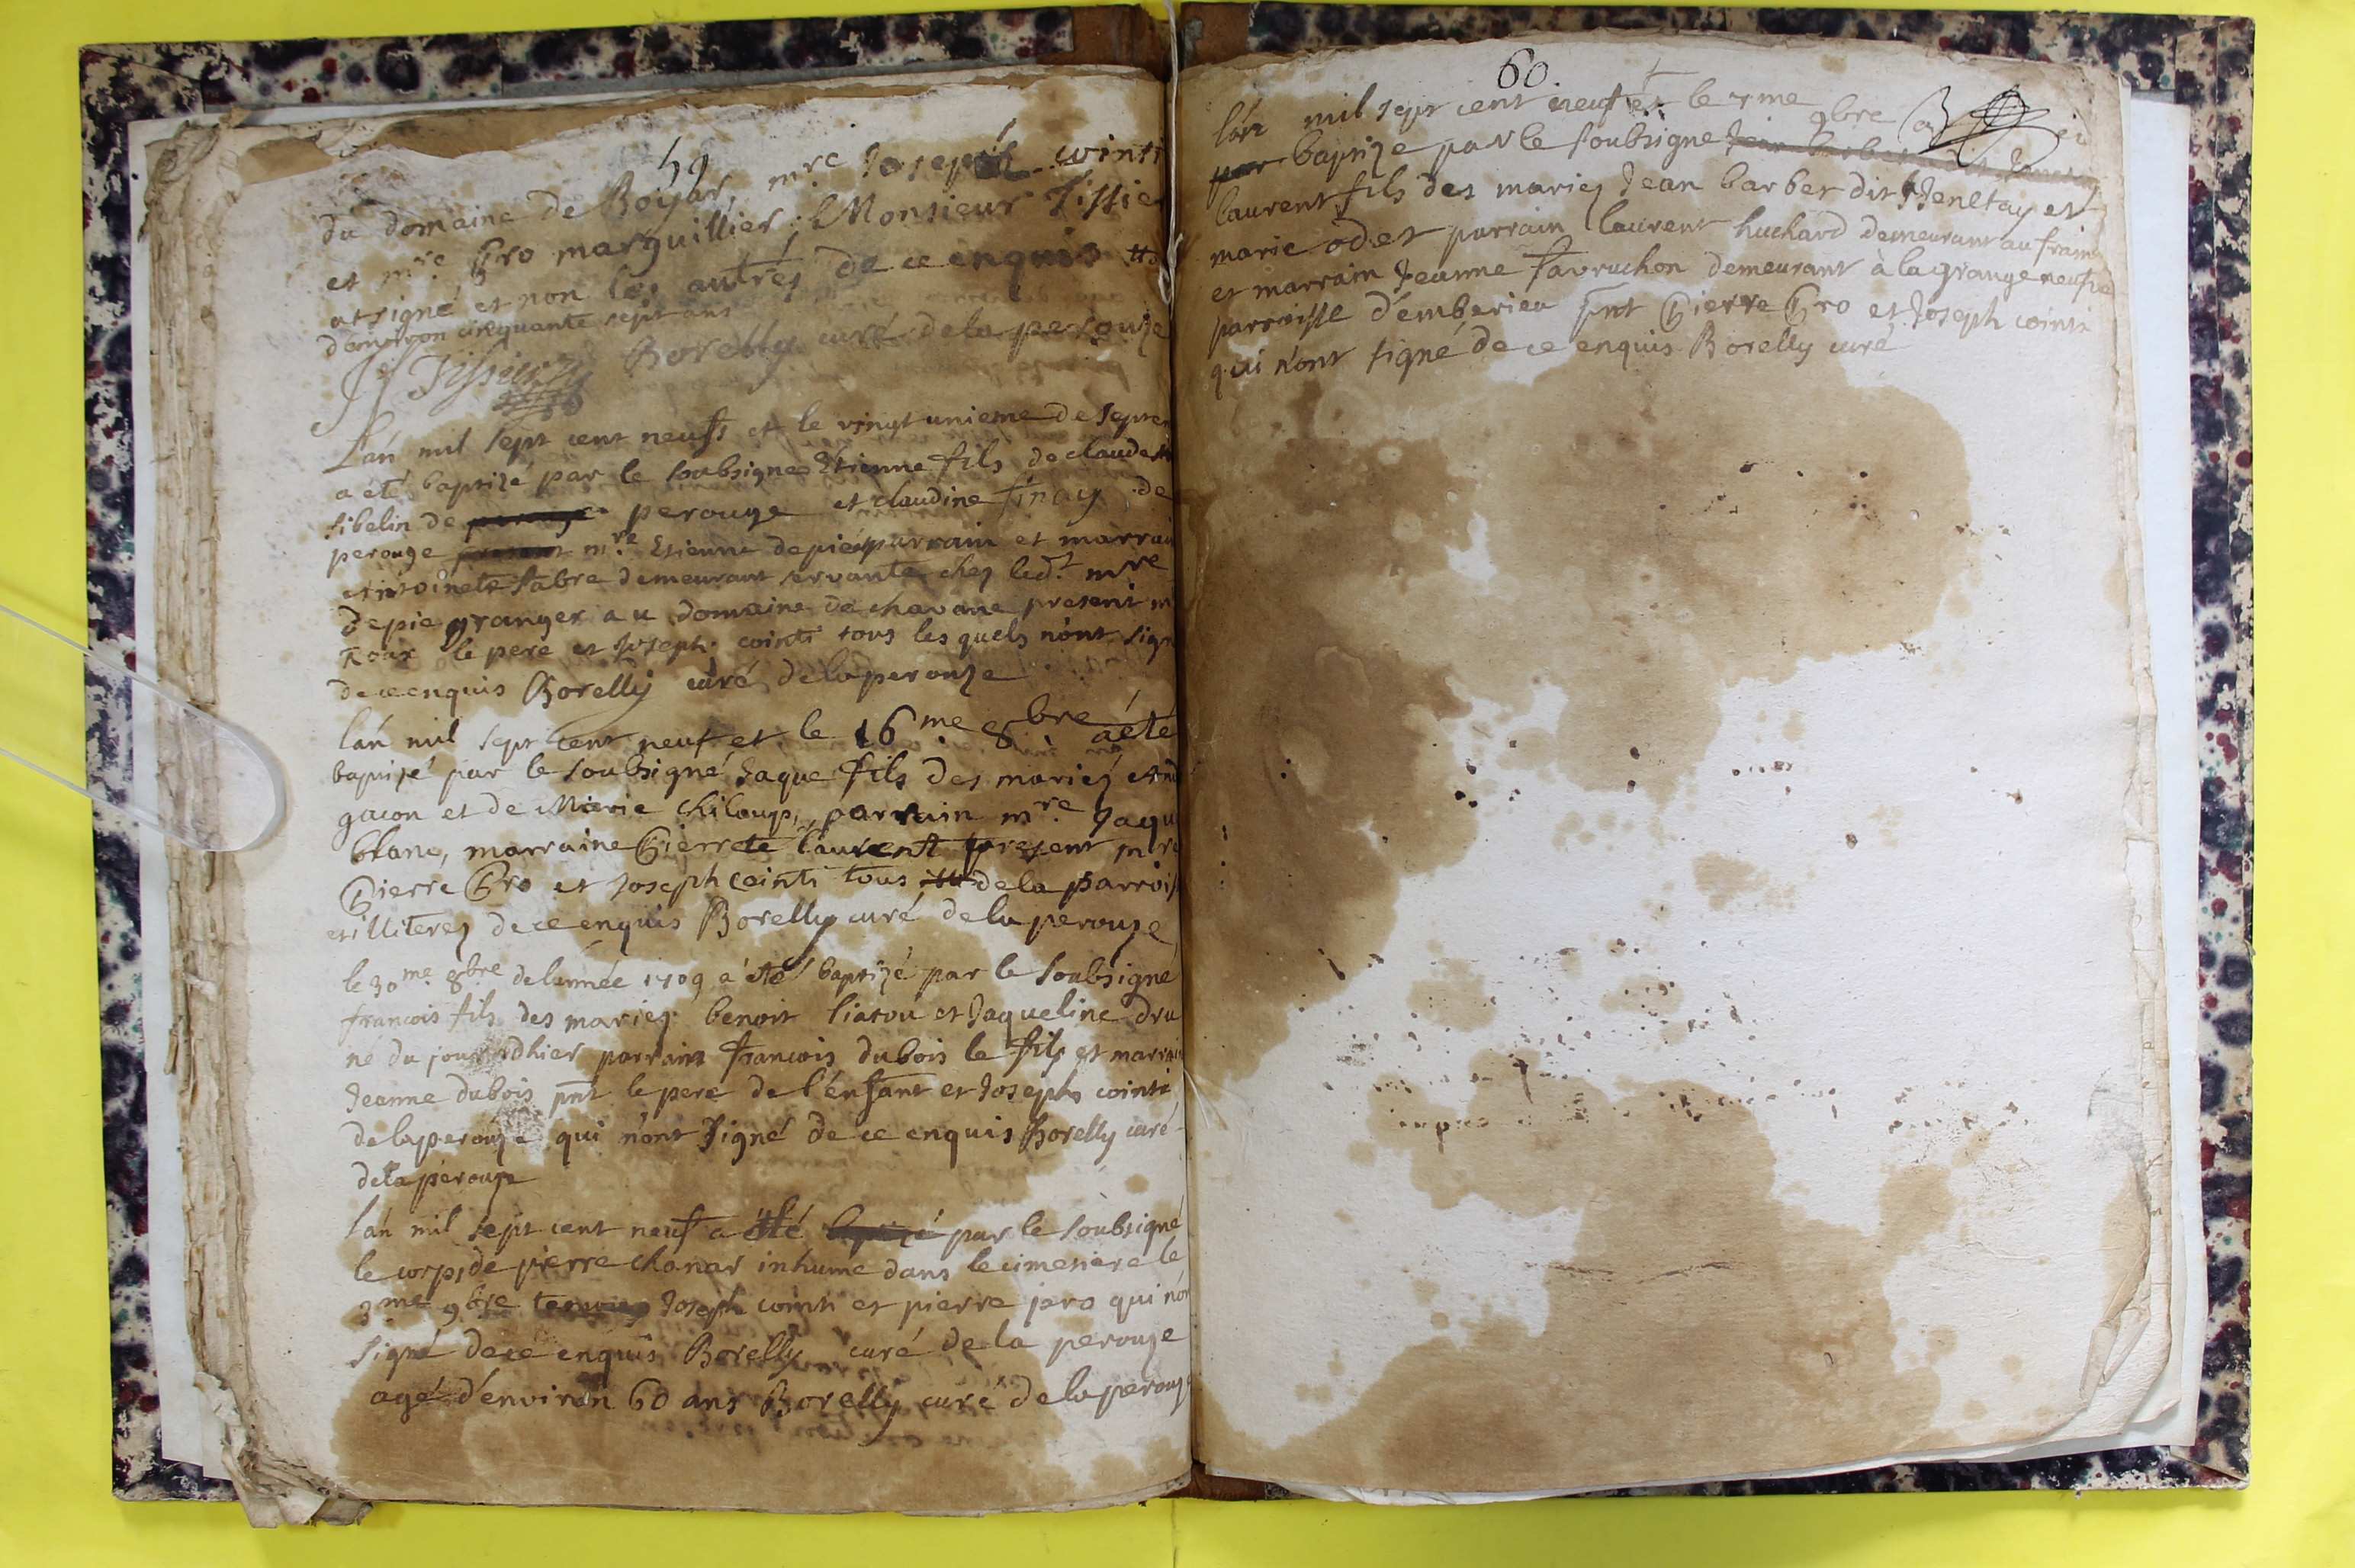 59
du domaine de Boyar, mre Joseph cointi
et mre Gro marguillier, Monsieur Tissie
at signé et non les autres de ce enquis
d'environ cinquante sept ans
Tissieur Borelly curé de la perouze
L'an mil sept cent neufs et le vingt unieme de septem
a été baptizé par le soubsigné Etienne fils de claude
sibelin de perouge et claudine firay de
perouge mre Etienne depié parrain et marrai
antoinete fabre demeurant servante chez led.t mre
depie granger au domaine de chavane present
le pere et Joseph cointi tous les quels n'ont sign
de ce enquis Borelly curé de la perouze
lan mil sept cent neuf et le 16me 8bre a été
baptizé par le soubsigné Jaque fils des mariez
gacon et de Marie chiloup, parrain mre Jaqu
blanc, marraine Pierrete laurent present mre
Pierre Gro et Joseph cointi tous de la parrois
et illiterez de ce enquis Borelly curé de la perouze
le 30me 8bre de lannée 1709 a été baptizé par le soubsigné
francois fils des mariez benoit liatou et Jaqueline dru
né du jour d'hier parrain francois dubois le fils et marrai
Jeanne dubois pnt le pere de l'énfant et Joseph cointi
de la perouze qui n'ont signé de ce enquis Borelly curé
de la perouze
lan mil sept cent neuf a été baptizé par le soubsigné
le corps de pierre chanar inhume dans le cimetiere le
3me 9bre temoins Joseph cointi et pierre gro qui n'on
signé de ce enquis Borelly curé de la perouze
agé d'environ 60 ans Borelly curé de la perouze
60.
l'an mil sept cent neuf et le 7me 9bre a été
par baptize par le soubsigne
laurent fils des mariez Jean barbet dit Jenltay et
marie odet parrain laurent huchard demeurant au
et marrain Jeanne favruchon demeurant à la grange neufve
parroisse d'émberieu pnt Pierre Gro et Joseph cointi
qui n'ont signé de ce enquis Borelly curé